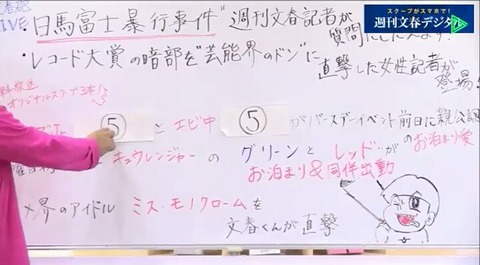 スクープがスマホで!
週刊文春デジタル
生放送
LIVE
・日馬富士暴行事件"週刊文春記者が
質問にこたえます!
・レコード大賞の暗部を"芸能界のドン"に
直撃した女性記者が
登場!
料放送
オリジナルスクープ3本!!
⑤ とエビ中 ⑤ がバースデーイベント前日に親公認
のお泊まり愛
曜日 キュウレンジャーの グリーンとレッドが
お泊まり&同伴出勤
界のアイドル ミス・モノクロームを
文春くんが直撃